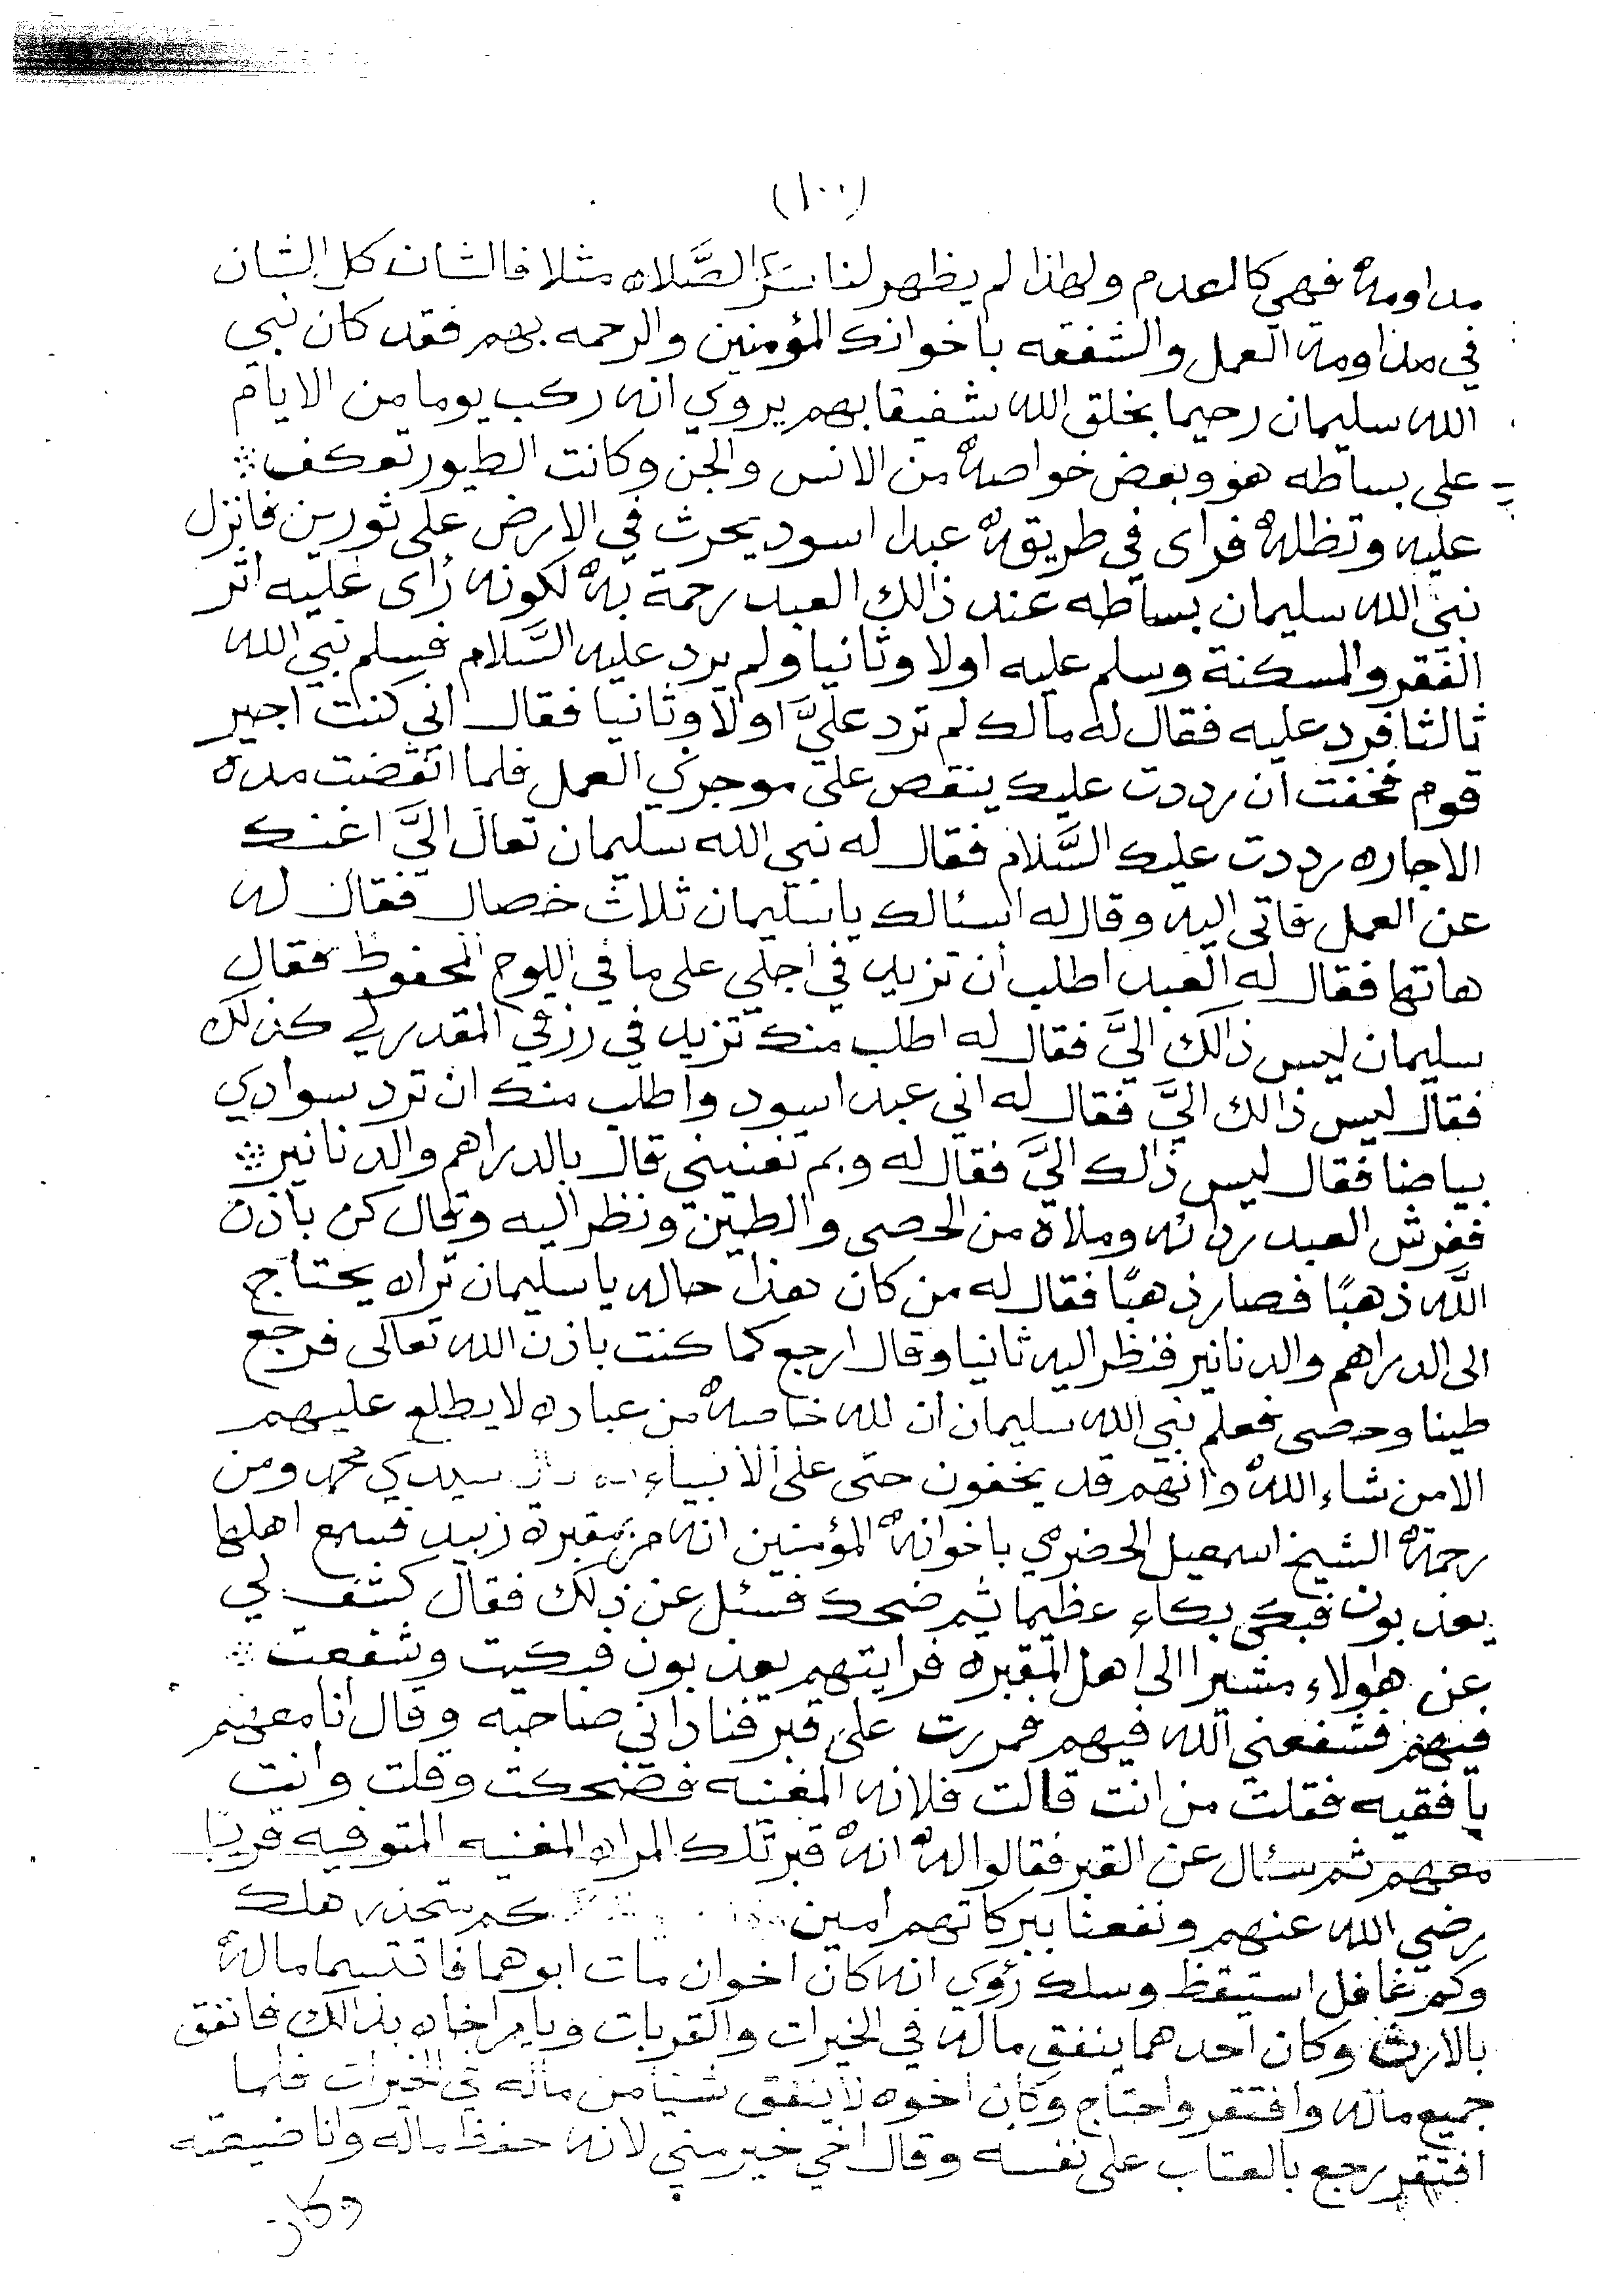 (١٠٠)
مداومة فهي كالعدم ولهاذا لم يظهر لنا سر الصَّلاه مثلا فالشان كل الشان
في مداومة العمل والشفقه باخوانك المؤمنين والرحمه بهم فقد كان نبي
الله سليمان رحيما بخلق الله شفيقا بهم يروي انه ركب يوما من الايام
على بساطه هو وبعض خواصه من الانس والجن وكانت الطيور تعكف
عليه وتظله فراى في طريقه عبدا اسود يحرث في الارض على ثورين فانزل
نبي الله سليمان بساطه عند ذالك العبد رحمة به لكونه رأى عليه اثر
الفقر والمسكنة وسلم عليه اولا وثانيا ولم يرد عليه السَّلام فسلم نبي الله
ثالثا فرد عليه فقال له مالك لم ترد عليَّ اولا وثانيا فقال اني كنت اجير
قوم فخفت ان رددت عليك ينقص على موجري العمل فلما انقضت مدة
الاجاره رددت عليك السَّلام فقال له نبي الله سليمان تعال اليَّ اغنك
عن العمل فاتى اليه وقال له اسئالك يا سليمان ثلاث خصال فقال له
هاتها فقال له العبد اطلب ان تزيد في اجلي على ما في اللوح المحفوظ فقال
سليمان ليس ذالك اليَّ فقال له اطلب منك تزيد في رزقي المقدر لي كذلك
فقال ليس ذالك اليَّ فقال له اني عبد اسود واطلب منك ان ترد سوادي
بياضا فقال ليس ذالك اليَّ فقال له وبم تغنيني قال بالدراهم والدنانير
ففرش العبد ردائه وملاه من الحصى والطين ونظر اليه وقال كن باذن
الله ذهبًا فصار ذهبًا فقال له من كان هذا حاله يا سليمان تراه يحتاج
الى الدراهم والدنانير فنظر اليه ثانيا وقال ارجع كما كنت باذن الله تعالى فرجع
طينا وحصى فعلم نبي الله سليمان ان لله خاصة من عباده لا يطلع عليهم
الا من شاء الله وانهم قد يخفون حتى على الانبياء سيدي محمد ومن
رحمة الشيخ اسمعيل الحضرمي باخوانه المؤمنين انه مر بمقبرة زبيد فسمع اهلها
يعذبون فبكى بكاء عظيما ثم ضحك فسئل عن ذلك فقال كشف لي
عن هاولاء مشيرا الى اهل المقبره فرايتهم يعذبون فبكيت وشفعت
فيهم فشفعني الله فيهم فمررت على قبر فناداني صاحبه وقال انا معهم
يا فقيه فقلت من انت قالت فلانه المغنيه فضحكت وقلت وانت
معهم ثم سئال عن القبر فقالوا له انه قبر تلك المراه المغنيه المتوفيه قريبا
رضي الله عنهم ونفعنا ببركاتهم امين كم متحذر هلك
وكم غافل استيقظ وسلك رؤي انه كان اخوان مات ابوهما فاقتسما ماله
بالارث وكان احدهما ينفق ماله في الخيرات والقربات ويامر اخاه بذالك فانفق
جميع ماله وافتقر واحتاج وكان اخوه لا ينفق شيئا من ماله في الخيرات فلما
افتقر رجع بالعتاب على نفسه وقال اخي خير مني لانه حفظ ماله وانا ضيعته
وكان